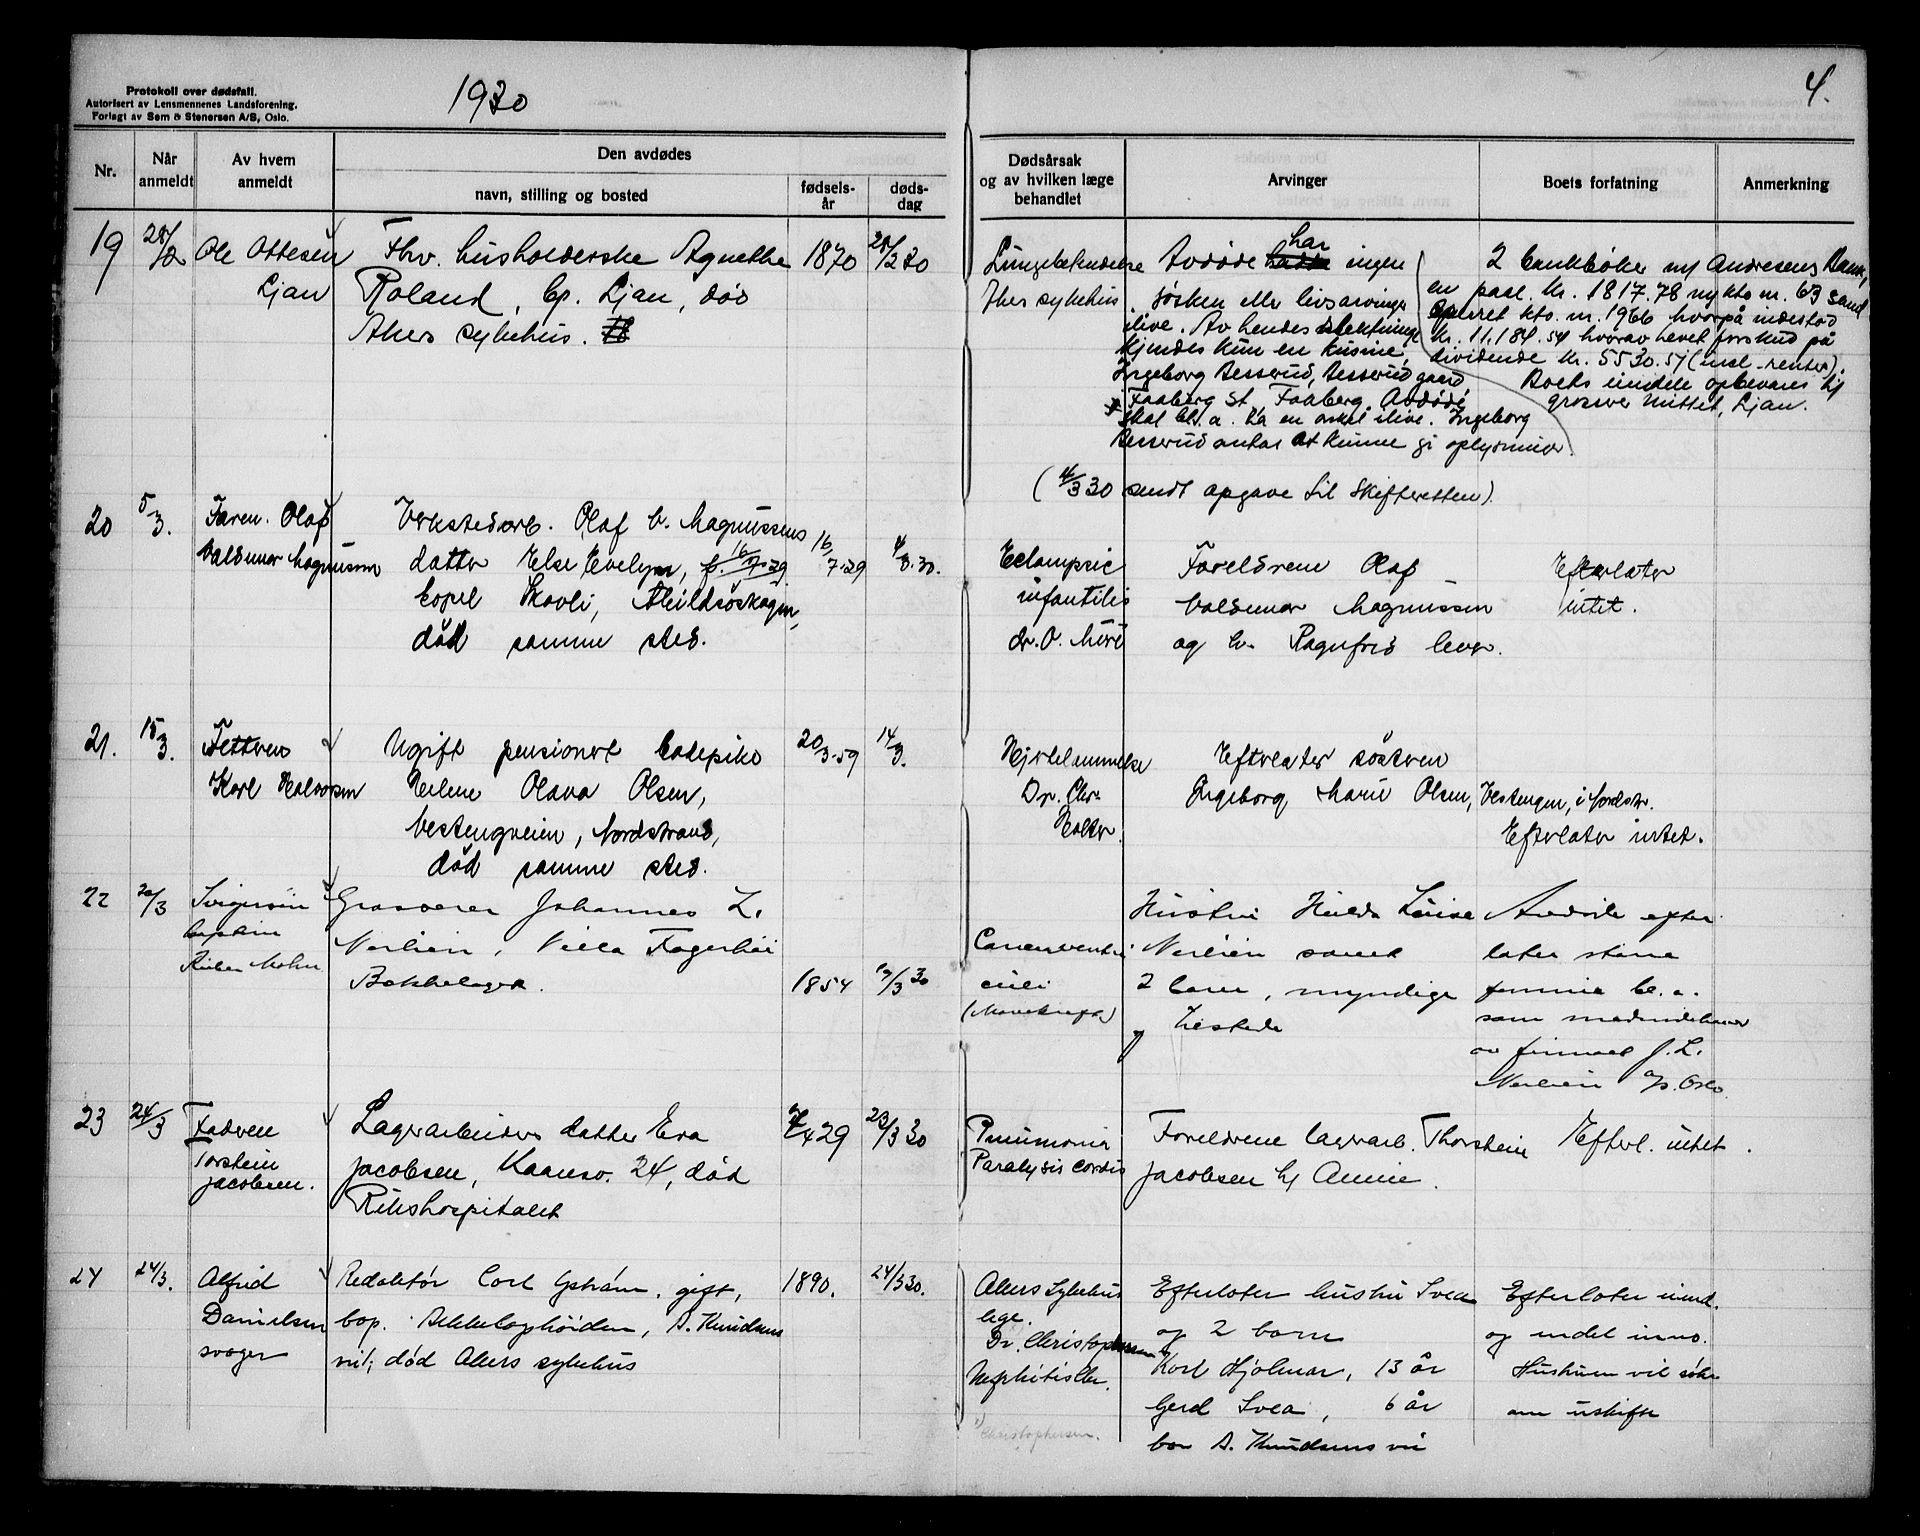 Protokoll over dødsfall.
Autorisert av Lensmennenes Landsforening.
Forlagt av Sem & Stenersen A/S, Oslo.
1930
4.
Nr.
Når anmeldt
Av hvem anmeldt
Den avdødes
navn, stilling og bosted
fødsels-år
døds-dag
Dødsårsak og av hvilken læge behandlet
Arvinger
Boets forfatning
Anmerkning
19
28/2
Ole Ottesen
Ljan
Fhv. husholderske Agnethe
Roland, bp. Ljan, død
Akers sykehus.
1870
28/2 30
Lungebetendelse
Akers sykehus
Avdøde hadde har ingen
søsken eller livsarvinger
ilive. Av hendes slektninge
kjendes kun en kusine,
Ingeborg Besserud, Besserud gaard,
Faaberg St. Faaberg. Avdøde
skal bl. a. ha en onkel ilive. Ingeborg
Besserud antas at kunne gi oplysninger.
2 bankbøker ny Andresens Bank,
en paal. kr. 1817.78 ny kto nr. 63 samt
sperret kto. nr. 1966 hvorpå indestod
kr. 11.184.54 hvorav hevet forskud på
dividende kr. 5530.51 (incl. renter).
Boets eiendele opbevares hj
grosser Mittet, Ljan.
(4/3 30 sendt opgave til Skifteretten).
20
5/3.
Faren. Olaf
Valdemar Magnussen
Verkstedarb. Olaf V. Magnussens
datter Else Evelyn, f. 16/7.29.
bopel Skovli, Ahildsöskogen,
död samme sted.
16/7.29
4/3.30.
Eclampsie
infantilis
dr. O. More
Foreldrene Olaf
Valdemar Magnussen
og h. Ragnfrid lever.
Efterlater
intet.
21.
15/3.
Fetteren
Karl Halvorsen
Ugift pensionert badepike
Helene Olava Olsen,
Vestengveien, Nordstrand,
död samme sted.
20/3.59
14/3.
Hjertelammelse
Dr. Chr.
Holter.
Efterlater söstren
Ingeborg Marie Olsen, Vestengen, i Nordstr.
Efterlater intet.
22
20/3
Svigersön
kaptein
Mohn
Grosserer Johannes L.
Nerlien, Villa Fagerhöi
Bekkelaget.
1854
19/3 30
Cancer ventri
culi
(Mavekreft)
Hustru Hulda Lovise
Nerlien samt
2 barn, myndige
og tilstede
Avdöde efter
later større
formue bl. a.
som medindehaver
av firmaet J. L.
Nerlien A/S. Oslo.
23
24/3
Faderen
Torstein
Jacobsen.
Lagerarbeiders datter Eva
Jacobsen, Kaansv. 24, død
Rikshospitalet
29
23/3 30
Pneumonia
Paralysis cordis
Foreldrene lagerarb. Thorstein
Jacobsen og Annie.
Efterl. intet.
24
24/3.
Alfrid
Danielsen
svoger
Redaktør Carl Gstrøm, gift,
bop. Bekkelagshøiden, A. Knudsens
vei; død Akers sykehus
1890.
24/3 30.
Akers Sykehus
lege.
Dr. Christophersen
Nephitis chr.
1) Christophersen.
Efterlater hustru Svea
og 2 barn
Karl Hjalmar, 13 år
Gerd Svea, 6 år
bor A. Knudsens vei
Efterlater innb.
og endel innb.
Hustruen vil søke
om uskifte